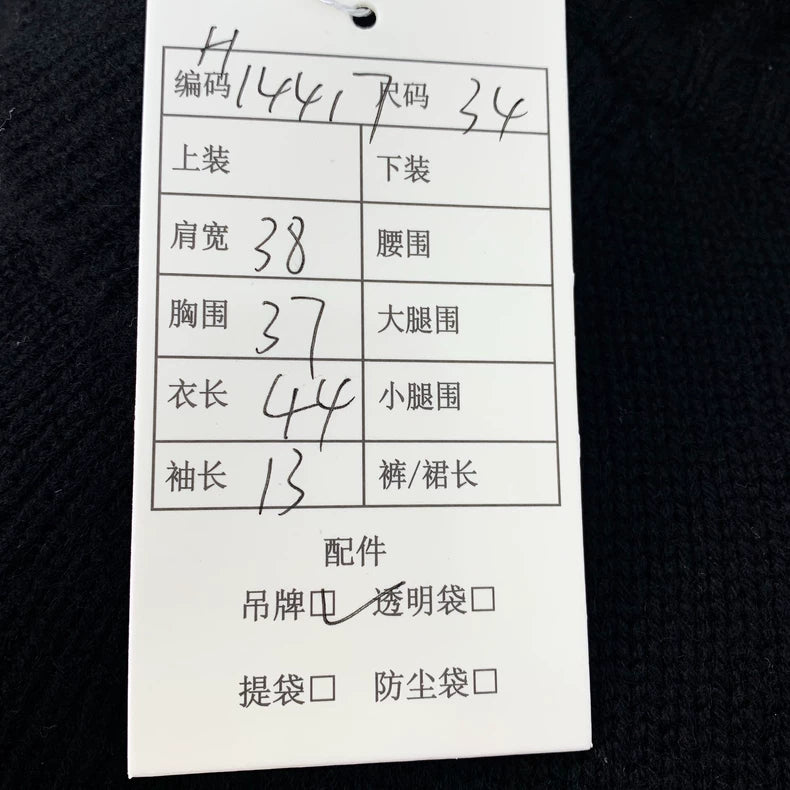 H
编码 14417 尺码 34
上装 下装
肩宽 38 腰围
胸围 37 大腿围
衣长 44 小腿围
袖长 13 裤/裙长
配件
吊牌 透明袋
提袋 防尘袋